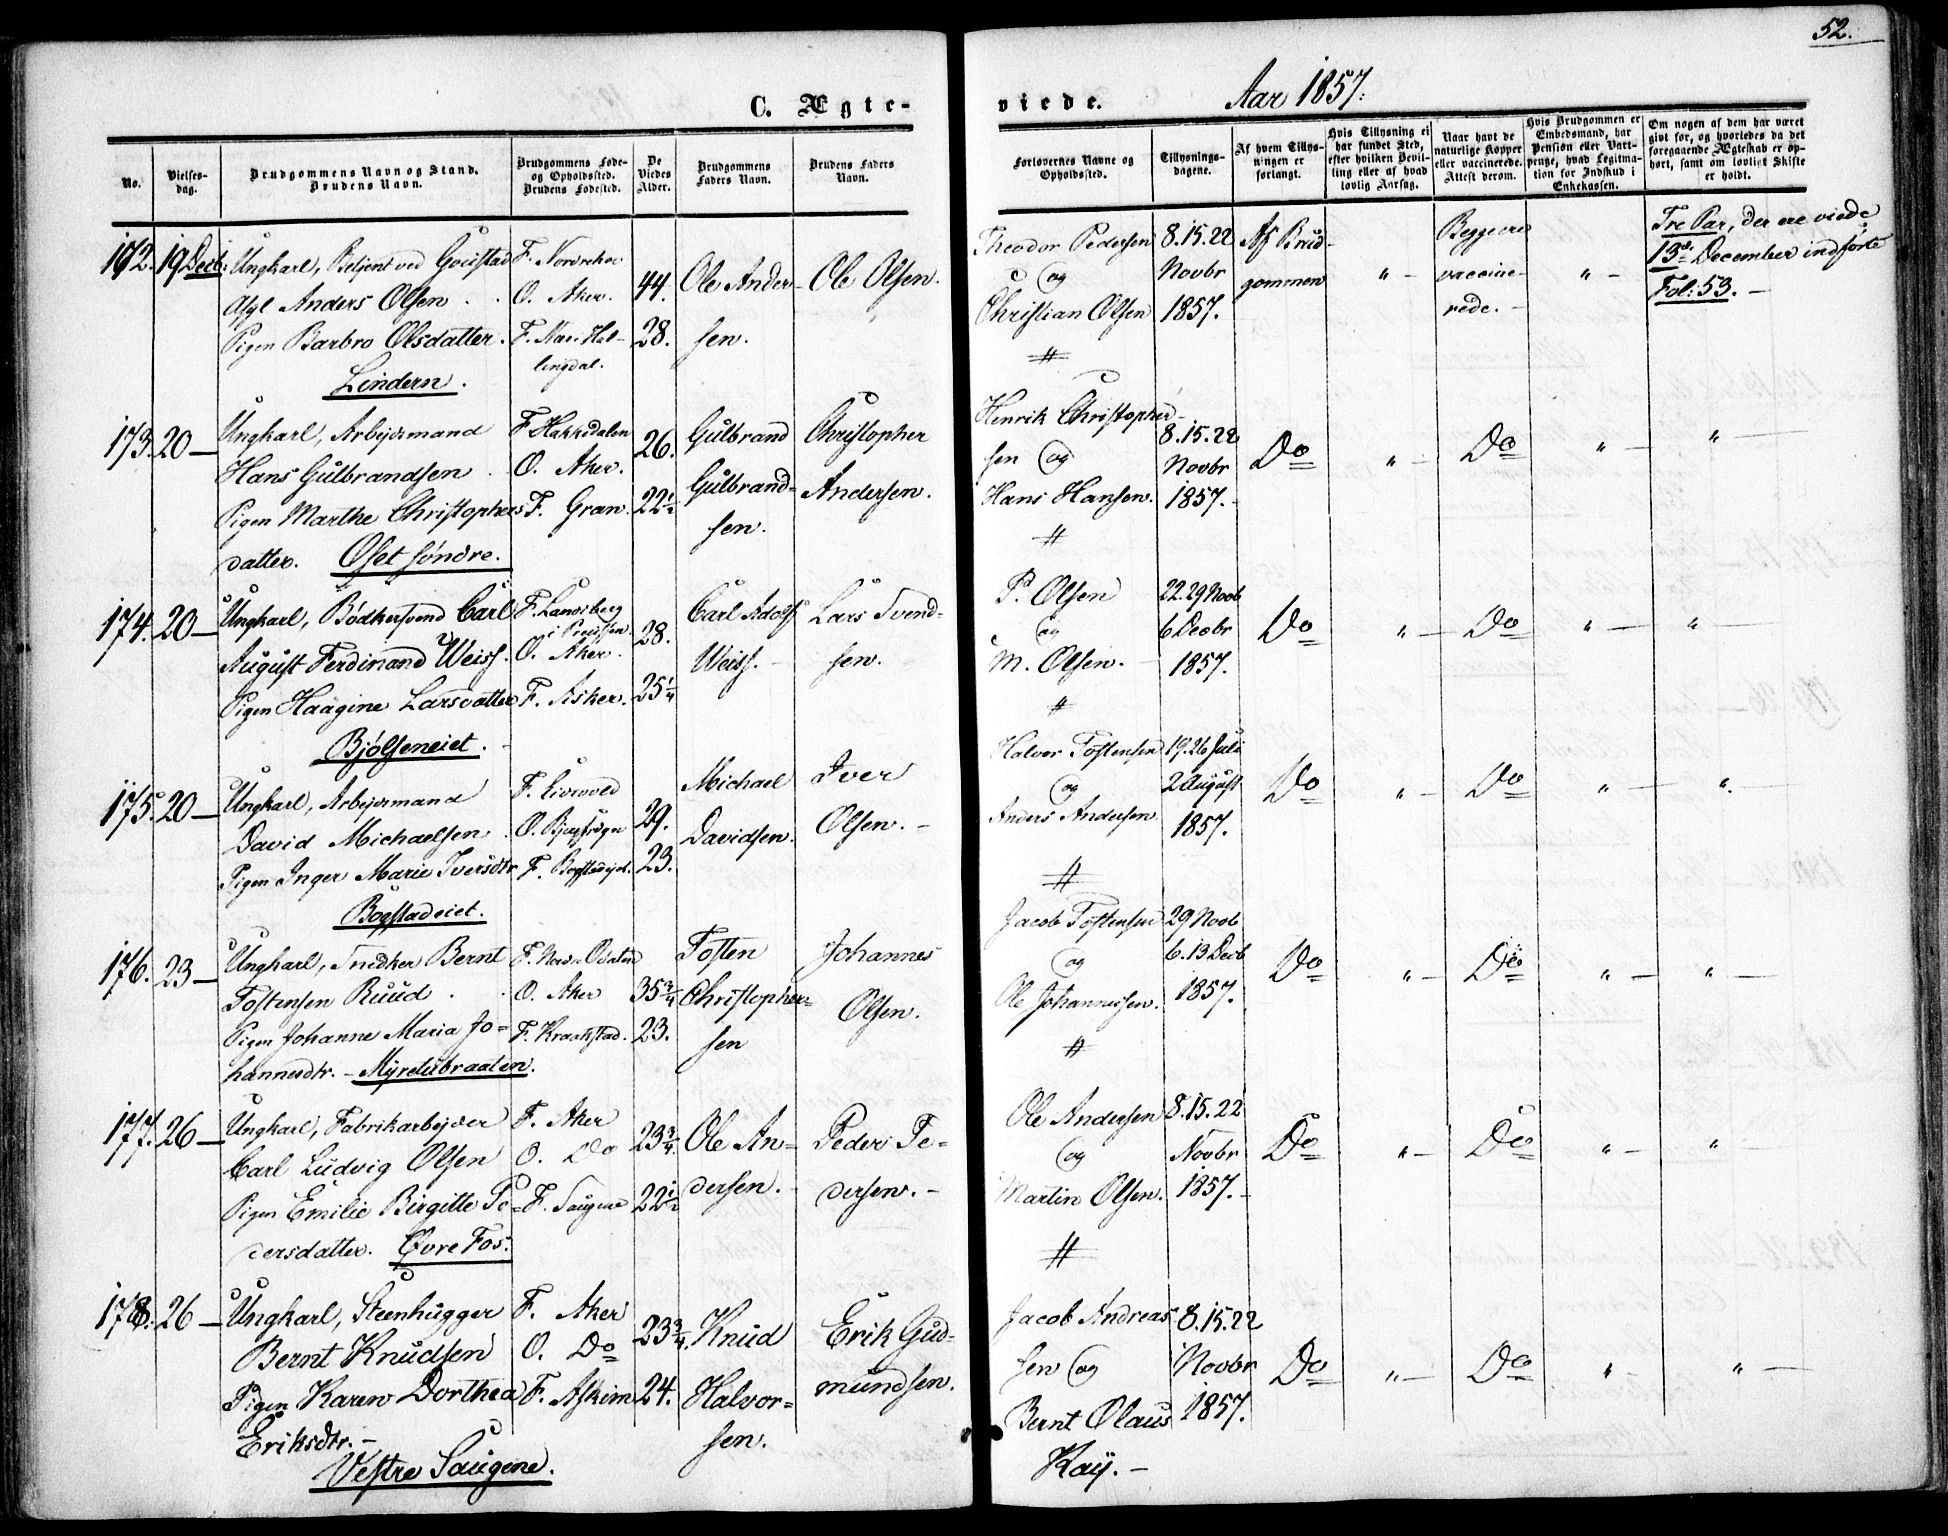 52.
C. Ægte-
viede.
Aar 1857.
No.
Vielses-
dag.
Brudgommens Navn og Stand.
Brudens Navn.
Brudgommens Føde-
og Opholdssted.
Brudens Fødested.
De
Viedes
Alder.
Brudgommens
Faders Navn.
Brudens Faders
Navn.
Forlovernes Navne og
Opholdssted.
Tillysnings-
dagene.
Af hvem Tillys-
ningen er
forlangt.
Hvis Tillysning ei
har fundet Sted,
efter hvilken Bevil-
ling eller af hvad
lovlig Aarsag.
Naar havt de
naturlige Kopper
eller vaccinerede.
Attest derom.
Hvis Brudgommen er
Embedsmand, har
Pension eller Vart-
penge, hvad Legitima-
tion for Indskud i
Enkekassen.
Om nogen af dem har været
gift før, og hvorledes da det
foregaaende Ægteskab er op-
hørt, samt om lovligt Skifte
er holdt.
172. 19 Decb.
Ungkarl, Betjent ved Goustad
Asyl Anders Olsen
Pigen Barbro Olsdatter.
Lindern.
F. Norderhov
O. Aker.
F. Næs Hal-
lingdal.
44.
28.
Ole Ander-
sen.
Ole Olsen.
Theodor Pedersen
og
Christian Olsen
8. 15. 22
Novbr
1857.
Af Brud-
gommen
" -
Begge ere
vaccine-
rede. -
" -
Tre Par, der ere viede
13de December indførte
Fol: 53. -
173. 20 -
Ungkarl, Arbejdsmand
Hans Gulbrandsen
Pigen Marthe Christophers
datter. Oset søndre.
F. Hakkedalen
O. Aker.
F. Gran.
26.
22½
Gulbrand
Gulbrand-
sen.
Christopher
Andersen.
Henrik Christopher-
sen og
Hans Hansen.
8. 15. 22
Novbr
1857. -
Do
" -
Do
" -
" -
174. 20 -
Ungkarl, Bødkersvend Carl
August Ferdinand Weiss.
Pigen Haagine Larsdatter
Bjølseneiet.
F. Landsberg
i Preussen.
O. Aker.
F. Asker.
28.
25¼
Carl Adolf
Weiss. -
Lars Svend-
sen.
P. Olsen
og
M. Olsen. -
22. 29 Novb
6 Decbr
1857.
Do
" -
Do
" -
" -
175. 20 -
Ungkarl, Arbejdsmand
David Michaelsen
Pigen Inger Marie Iversdtr
Bogstadeiet.
29.
23.
Michael
Davidsen.
Iver
Olsen. -
Halvor Tostensen
og
Anders Andersen
19. 26 Juli
2 August
1857.
Do
" -
Do
" -
" -
176. 23 -
Ungkarl, Snedker Bernt
Tostensen Ruud
Pigen Johanne Maria Jo-
hannesdtr. - Myrelubraaten.
F. Nordre Odalen
O. Aker
F. Kraakstad.
35¾
23.
Tosten
Christopher-
sen
Johannes
Olsen.
Jacob Tostensen
og
Ole Johannessen.
29 Novb
6. 13 Decb
1857.
Do
" -
Do
" -
" -
177. 26 -
Ungkarl, Fabrikarbejder
Carl Ludvig Olsen
Pigen Emilie Birgitte Pe-
dersdatter. Øvre Fos.
F. Aker
O. Do
F. Saugene
23¾.
22½
Ole An-
dersen. -
Peder Pe-
dersen. -
Ole Andersen
og
Martin Olsen.
8. 15. 22
Novbr
1857. -
Do
" -
Do
" -
" -
178. 26 -
Ungkarl, Steenhugger
Bernt Knudsen
Pigen Karen Dorthea
Eriksdtr. -
Vestre Saugene.
F. Aker
O. Do
F. Askim
23¾.
24.
Knud
Halvor-
sen.
Erik Gud-
mundsen.
Jacob Andreas
sen og
Bernt Olaus
Kay. -
8. 15. 22
Novbr
1857.
Do
" -
Do
" -
" -